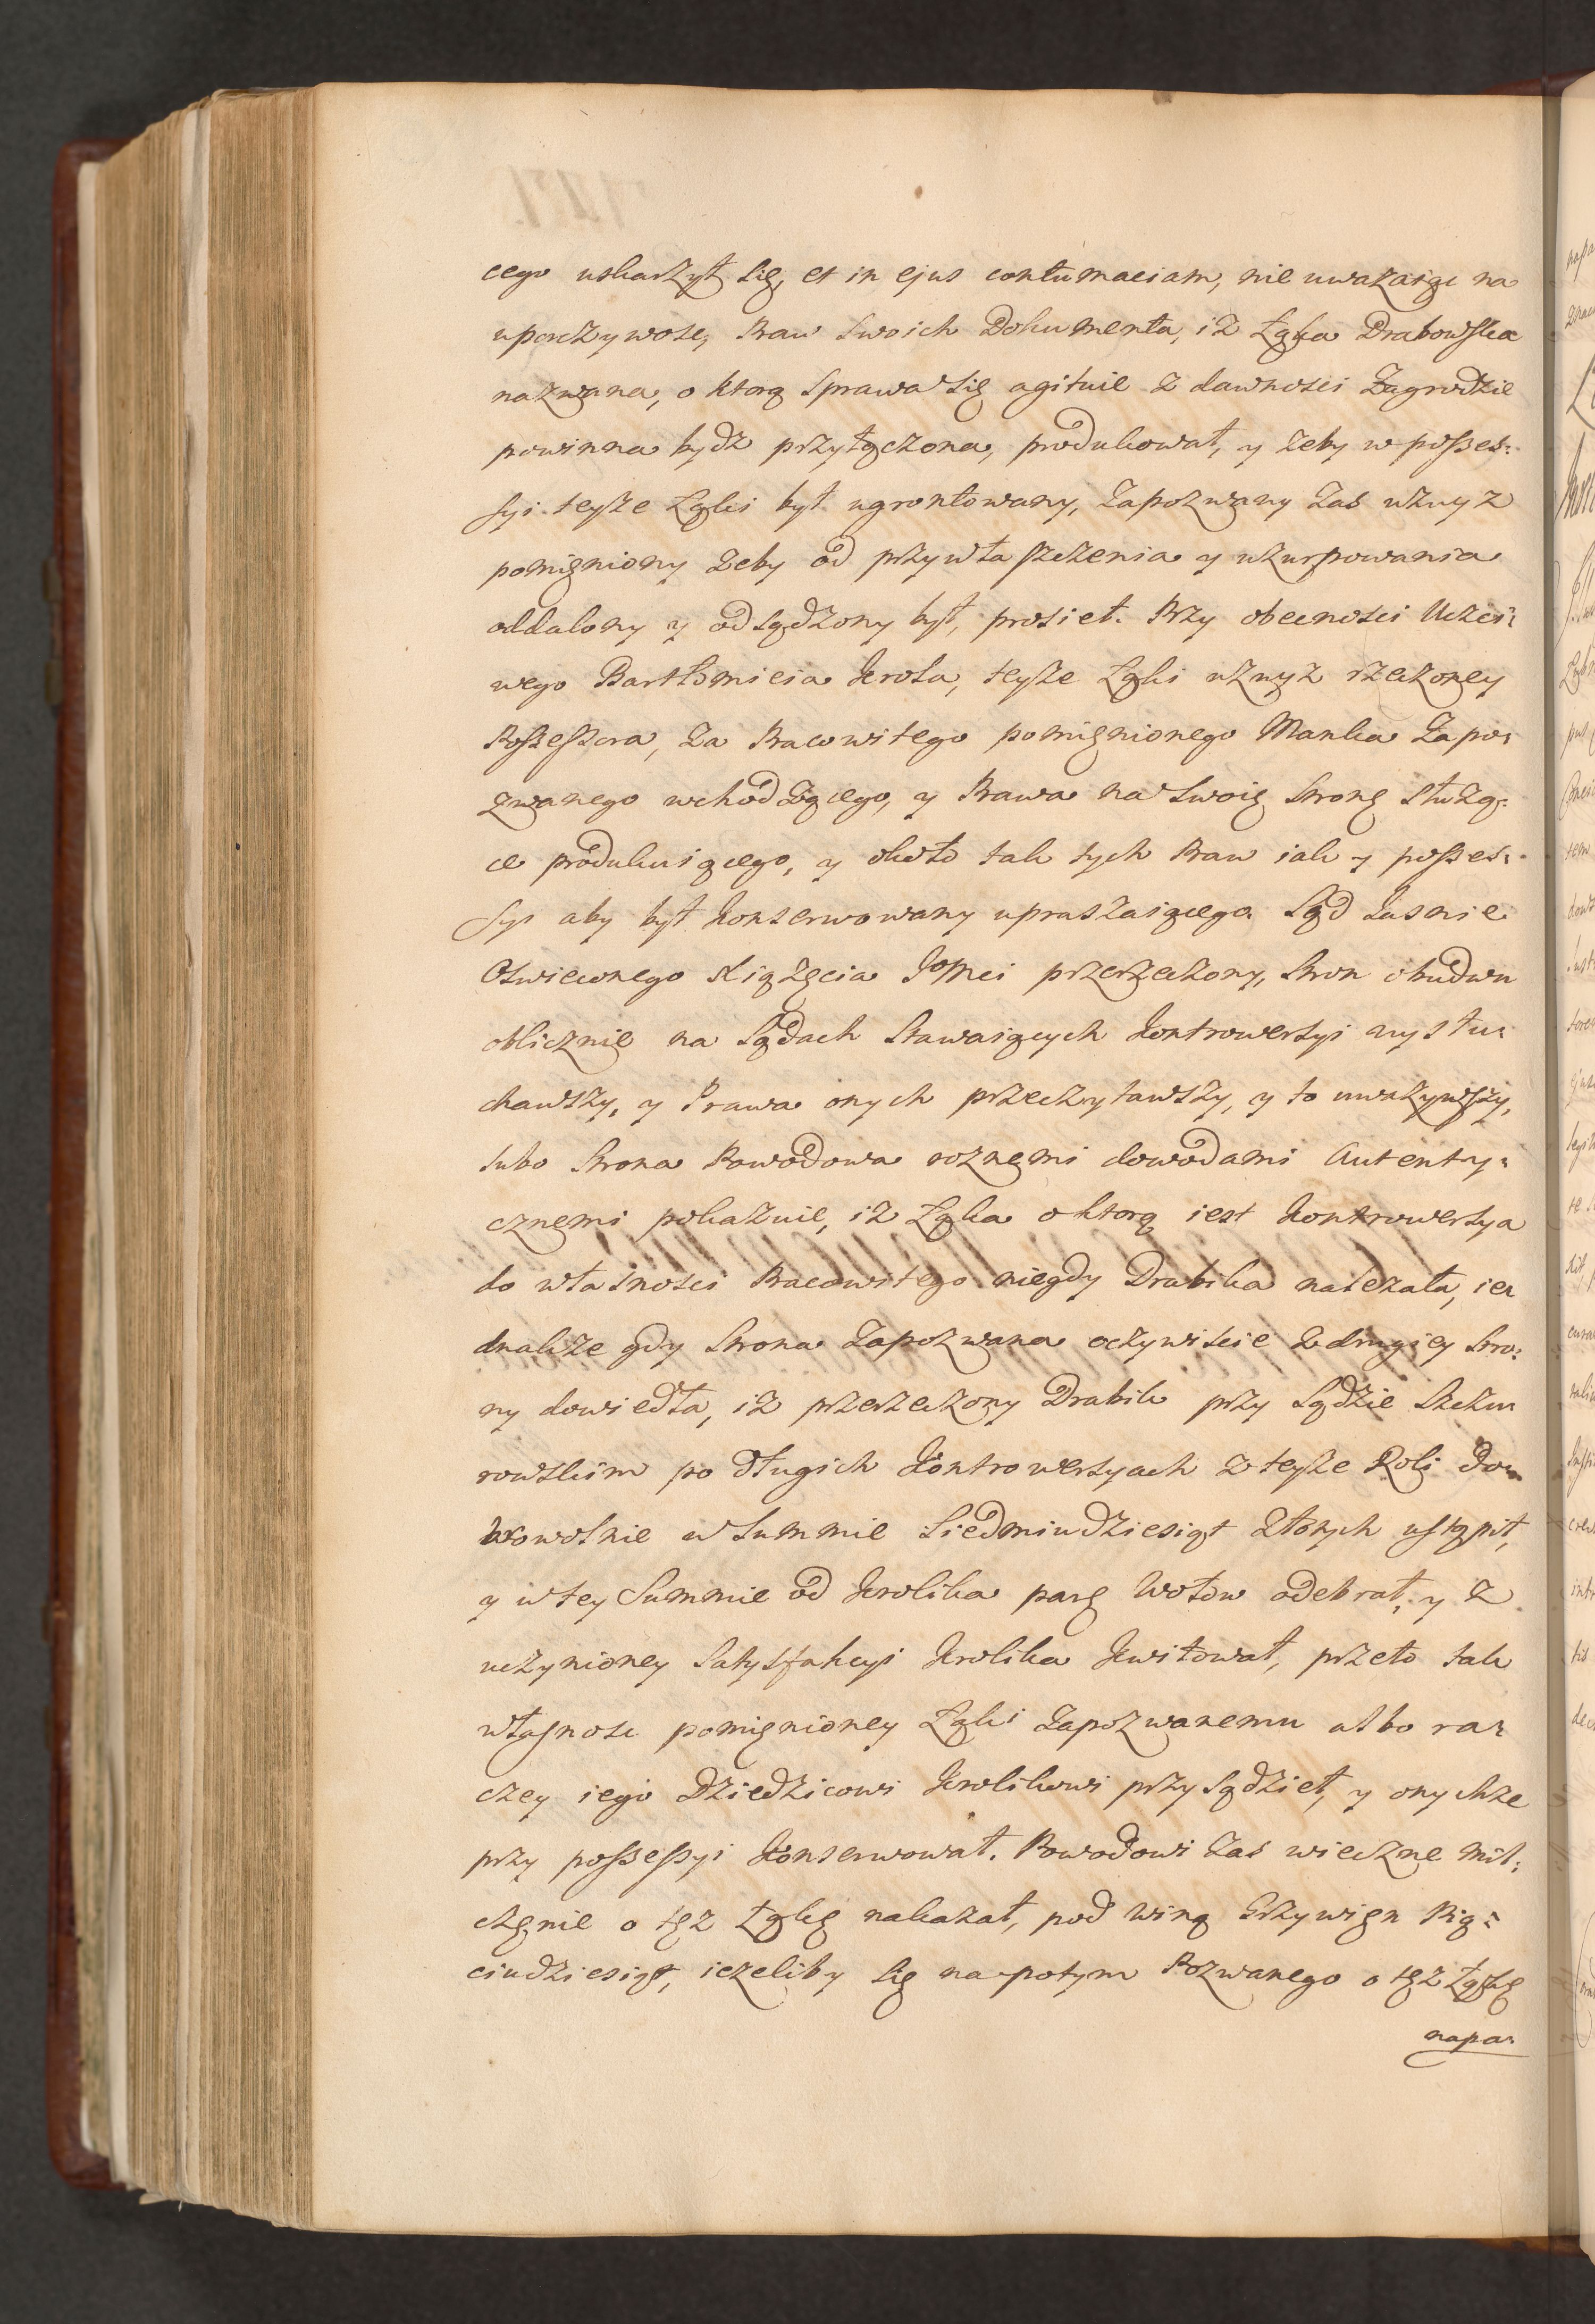 cego uskarżył się, et in ejus contumaciam, nie uważaiąc na
uporczywosc, Praw swoich Dokumenta, iż Łąka Drabowska
nazwana, o ktorą sprawa się agituie z dawnosci Zagrodzie
powinna bydz przyłączona, produkował, y żeby w posses:
syi teyże Łąki był ugrontowany, Zapozwany zas uznyż
pomięniony żeby od przywłaszczenia y uzurpowania
oddalony y odsądzony był, prosieł. Przy obecnosci Uczci:
wego Bartłomieia Krola, teyże Łąki uznyż rzeczoney
Possessora, za Pracowitego pomięnionego Manka Zapo:
zwanego wchodzącego, y Prawa na swoię stronę służą:
ce produkuiącego, y około tak tych Praw iak y posses:
syi aby był konserwowany upraszaiącego Sąd Jasnie
Oswieconego Xiążęcia JoMci przerzeczony, stron obudwu
oblicznie na Sądach stawaiących kontrowersyi wysłu:
chawszy, y Prawa onych przeczytawszy, y to uważywszy,
lubo strona Powodowa roznemi dowodami Autenty:
cznemi pokazuie, iż Łąka o ktorą iest kontrowersya
do własnosci Pracowitego niegdy Drabika należała, ie:
dnakże gdy strona Zapozwana oczywiscie z drugiey stro:
ny dowiedła, iż przerzeczony Drabik przy Sądzie Szczu
rowskim po długich kontrowersyach z teyże Roli do:
browolnie w summie siedmiudziesiąt złotych ustąpił,
y w tey Summie od Krolika parę Wołow odebrał, y z
uczynioney satysfakcyi Krolika kwitował, przeto tak
własnosc pomięnioney Łąki Zapozwanemu albo ra:
czey iego Dziedzicowi Krolikowi przysądzieł, y onychże
przy possessyi konserwował. Powodowi zas wieczne mil:
częnie o tęż Łąkę nakazał, pod winą Grzywięn Pię:
ciudziesiąt, ieżeliby się na potym Pozwanego o tęż Łąkę
napa: